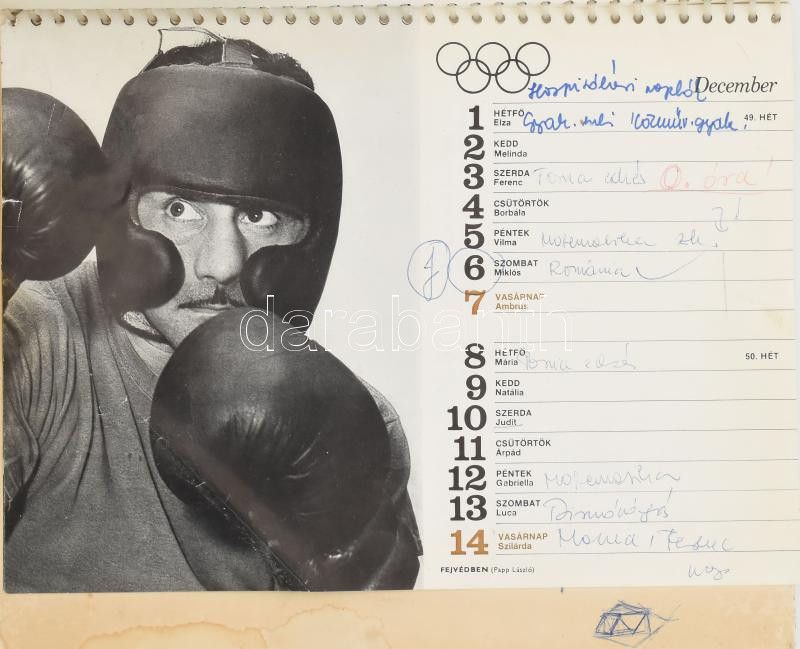 December
1 HÉTFŐ Elza Gyak. 49. HÉT
2 KEDD Melinda
3 SZERDA Ferenc Torna 0. óra!
4 CSÜTÖRTÖK Borbála !
5 PÉNTEK Vilma Matematika
6 SZOMBAT Miklós Románia
7 VASÁRNAP Ambrus
darabanth
8 HÉTFŐ Mária Torna 50. HÉT
9 KEDD Natália
10 SZERDA Judit
11 CSÜTÖRTÖK Árpád
12 PÉNTEK Gabriella Matematika
13 SZOMBAT Luca
14 VASÁRNAP Szilárda Ferenc
FEJVÉDBEN (Papp László)